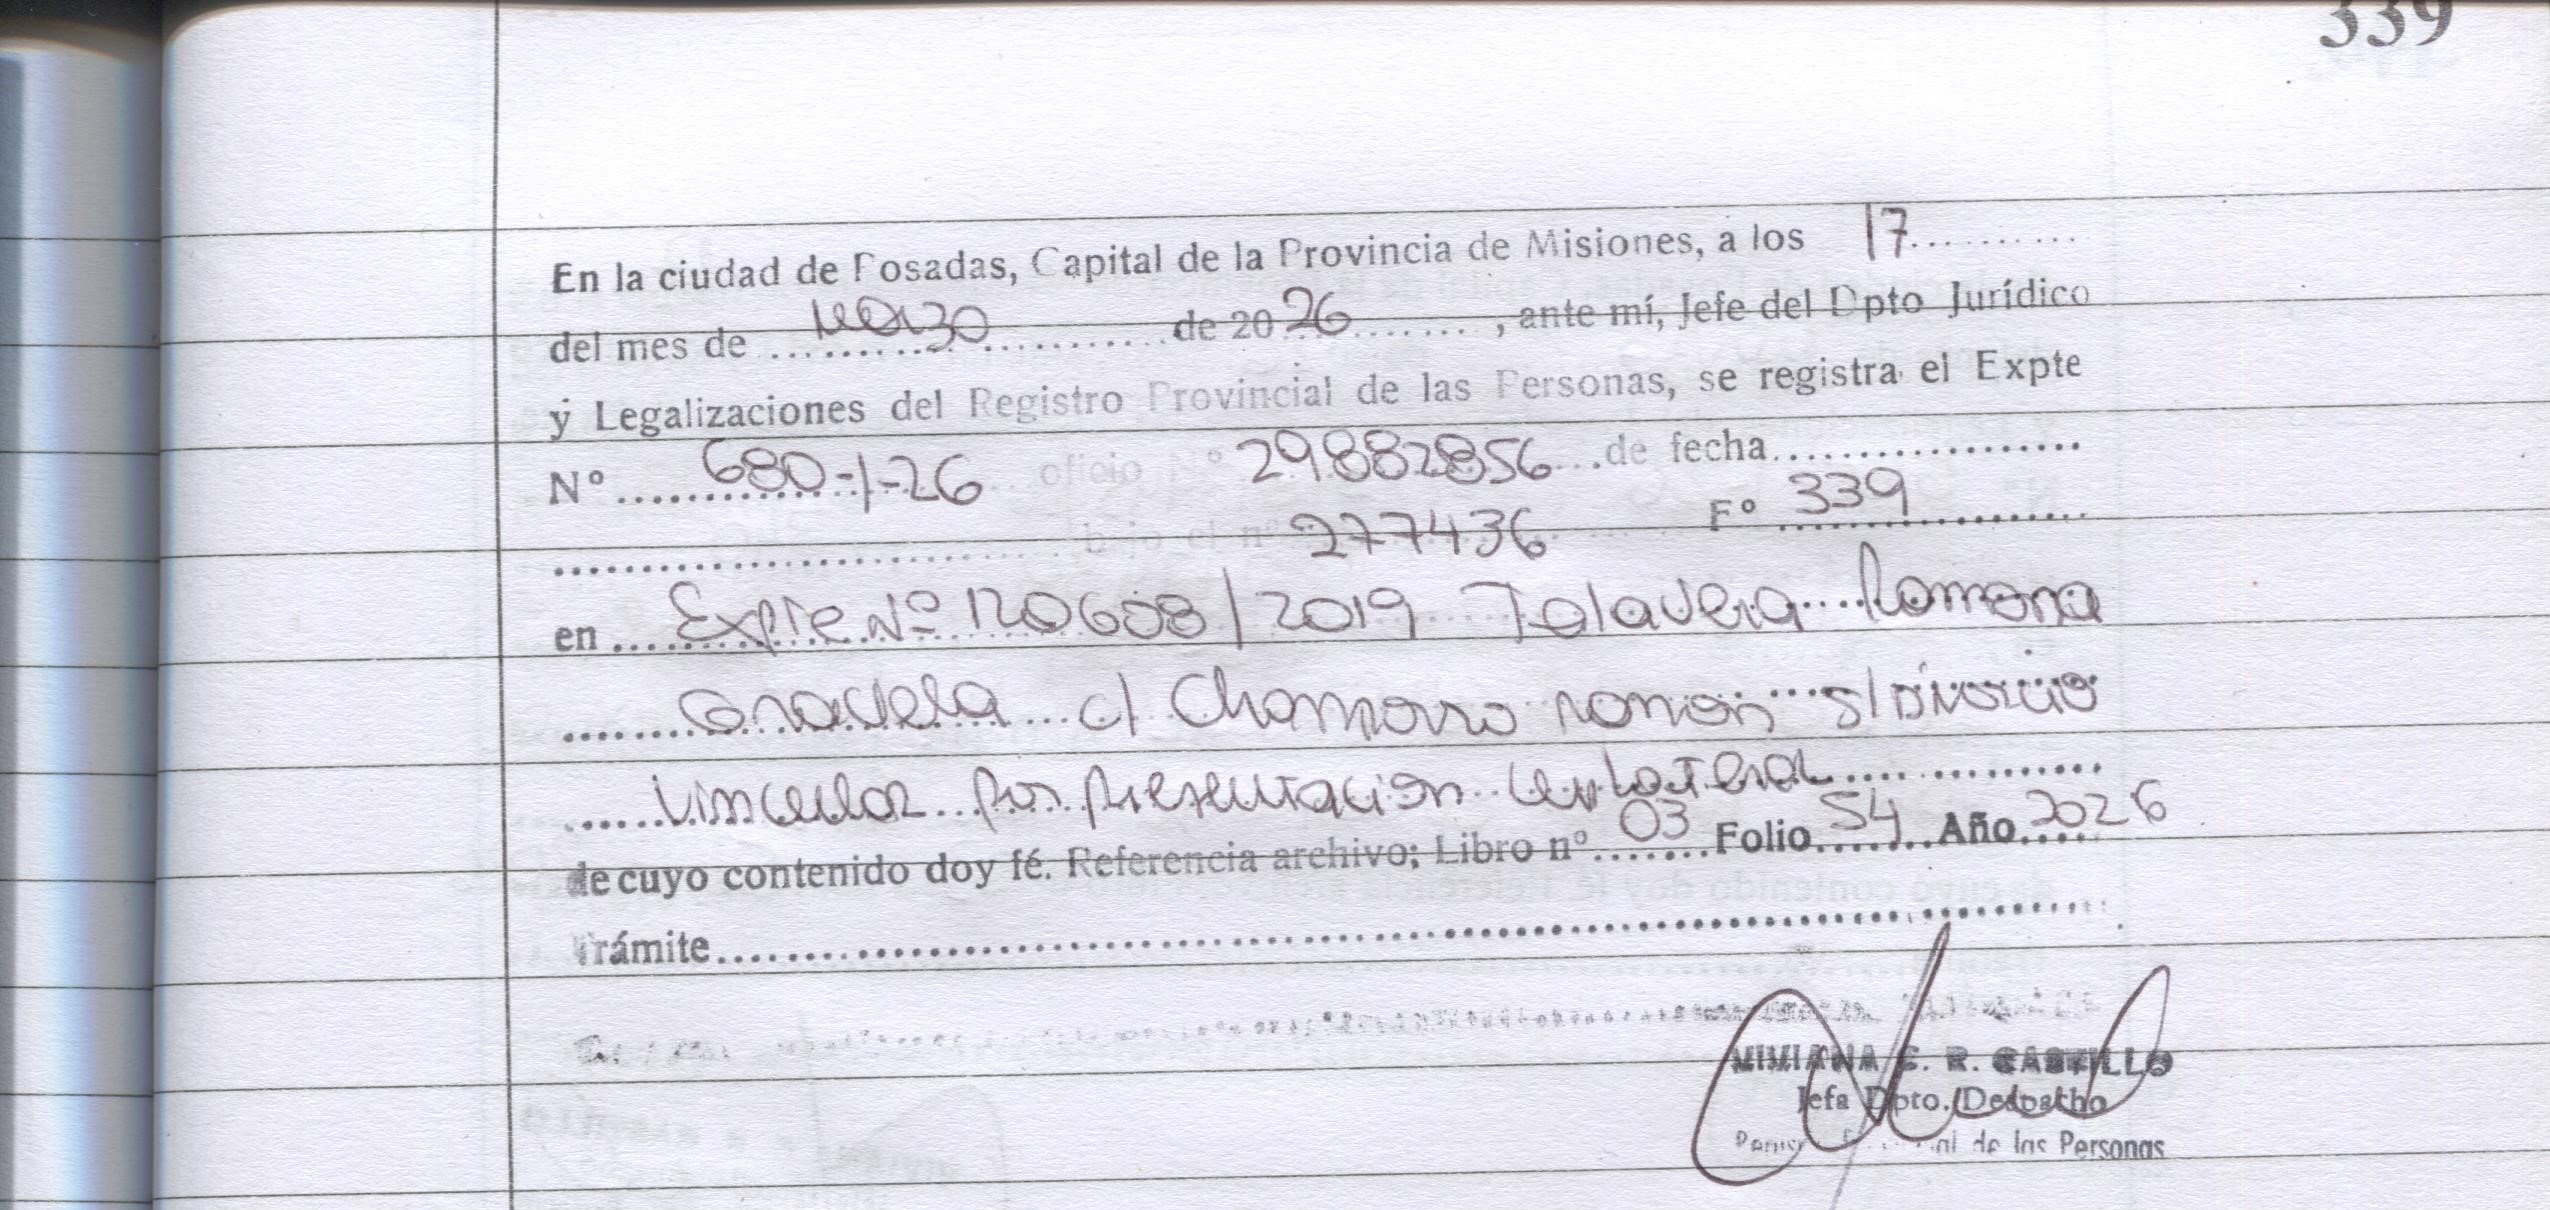 339
En la ciudad de Posadas, Capital de la Provincia de Misiones, a los 17..........
del mes de ... marzo ............ de 20 26 ........, ante mí, Jefe del Dpto Jurídico
y Legalizaciones del Registro Provincial de las Personas, se registra el Expte
Nº ...... 680-1-26 oficio Nº 29882856 ...de fecha..................
.............................. bajo el nº 277436 Fº 339
en .... Expte Nº 120608/2019 Talavera Romona
....... Graciela c/ Chamorro ramón s/Divorcio
...... Vincular por presentación unilateral ................
de cuyo contenido doy fé. Referencia archivo; Libro nº 03 Folio 54 Año 2026
Trámite............................................................
VIVIANA E. R. CASTILLO
Jefa Dpto. Despacho
de las Personas